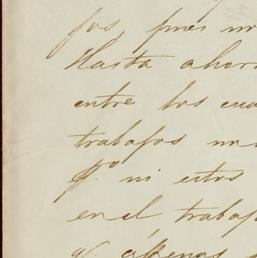 jos, pues no
Hasta ahora
entre los cua
trabajos no
po ni estos
en el trabajo
y apenas